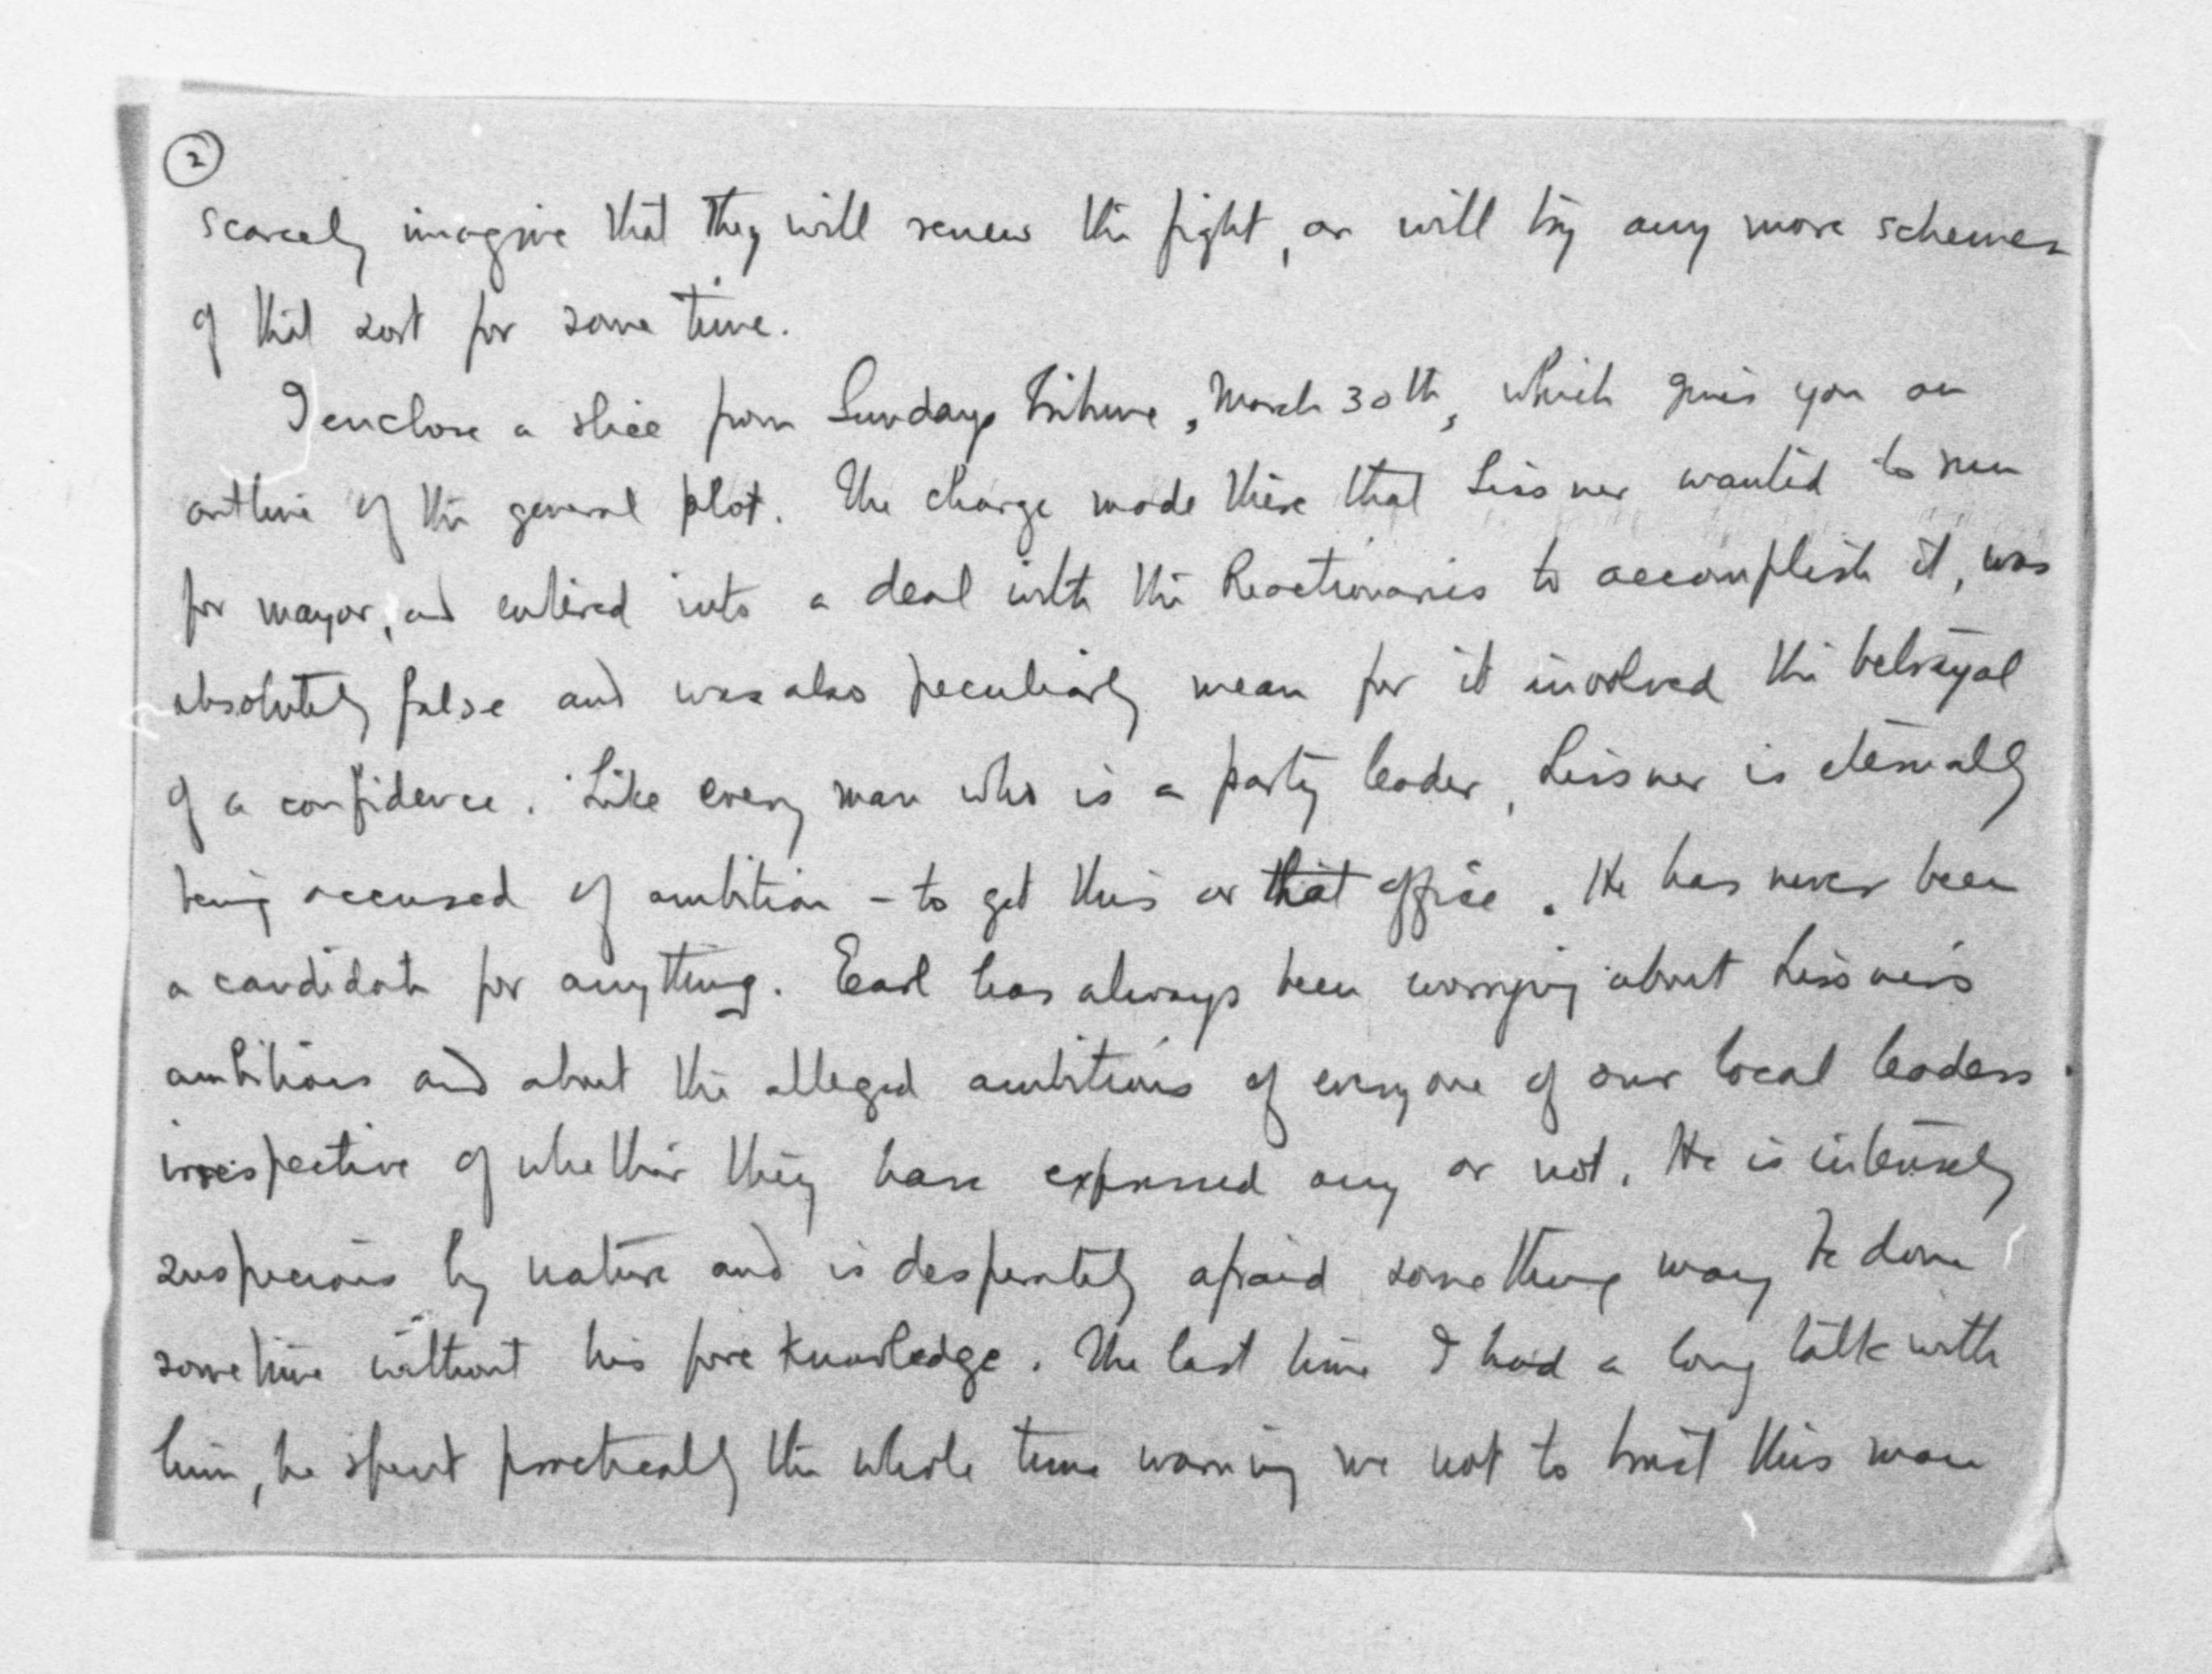 2
scarcely imagine that they will renew the fight, or will try any more schemes
of that sort for some time.
I enclose a slice from Sundays Tribune, March 30th, which gives you an
outline of the general plot. The charge made there that Lissner wanted to run
for mayor, and entered into a deal with the Reactionaries to accomplish it, was
absolutely false and was also peculiarly mean for it involved the betrayal
of a confidence. Like every man who is a party leader, Lissner is eternally
being accused of ambition - to get this or that office. He has never been
a candidate for anything. Earl has always been worrying about Lissner's
ambitions and about the alleged ambitions of everyone of our local leaders
irrespective of whether they have expressed any or not. He is intensely
suspicious by nature and is desperately afraid something may be done
sometime without his fore knowledge. The last time I had a long talk with
him, he spent practically the whole time warning me not to trust this man